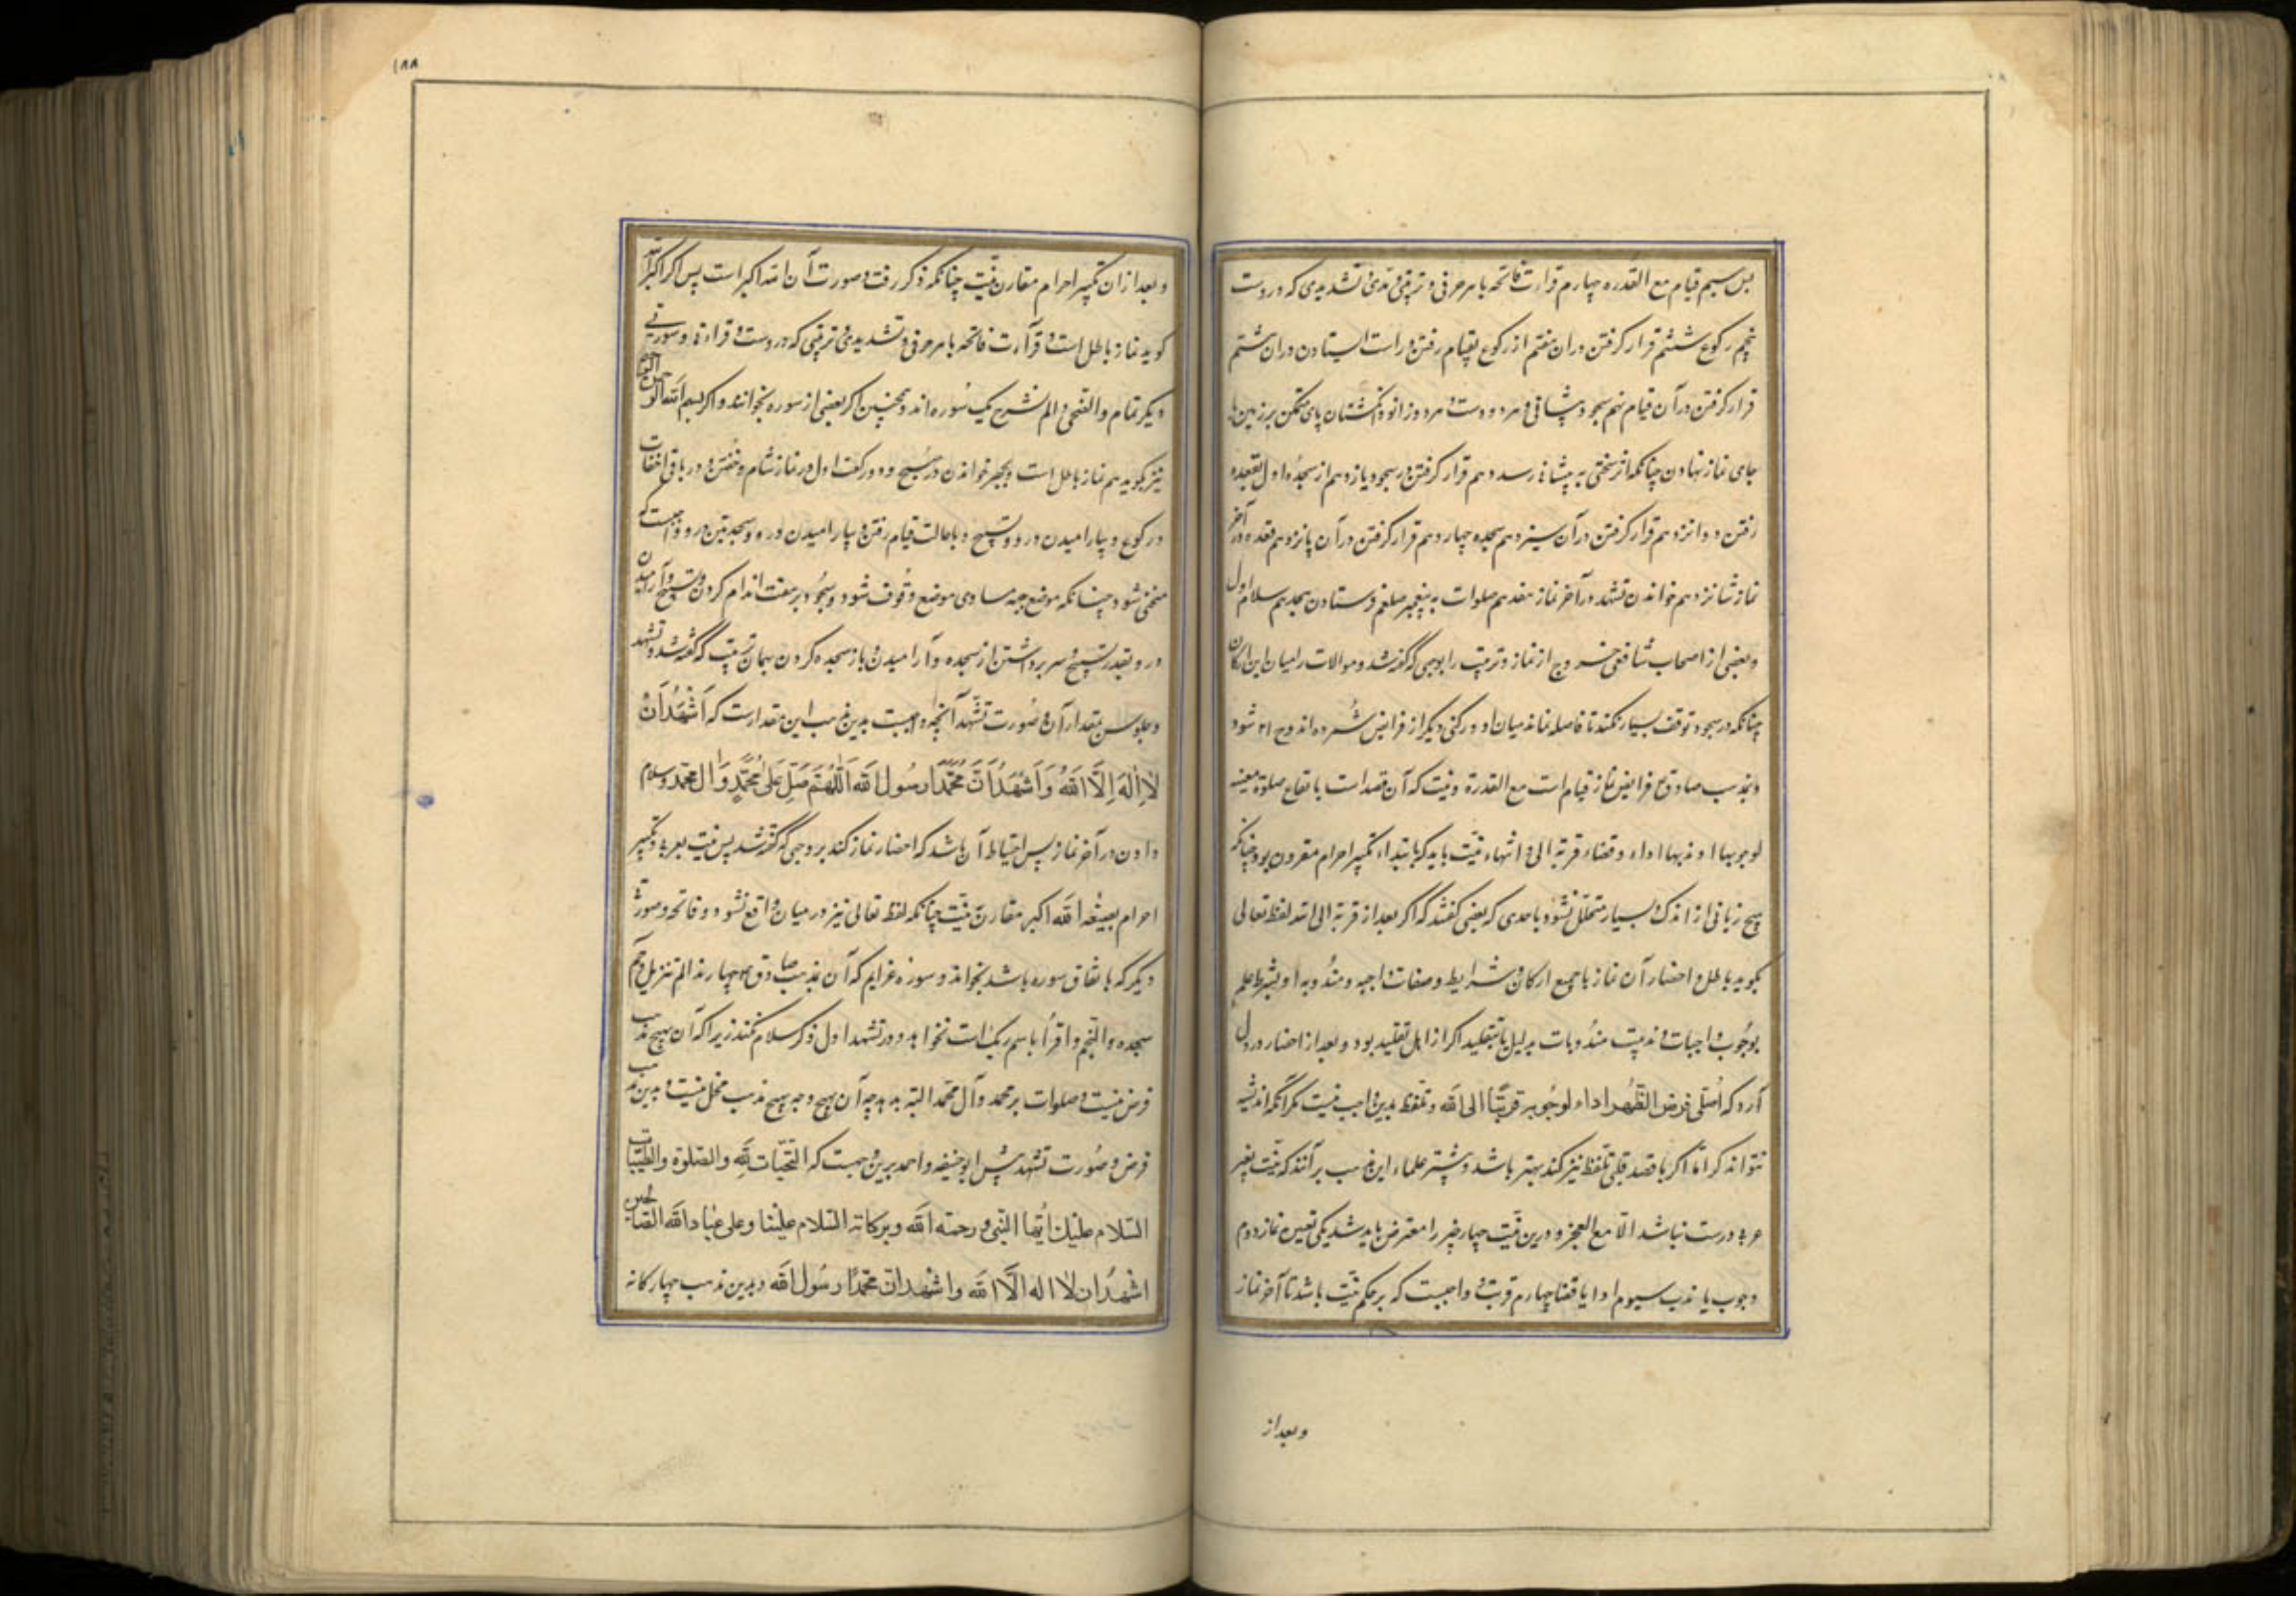 بس سیم قیام مع القدره چهارم قراءت فاتحه با هر حرفی و ترتیبی و مدی و تشدیدی که دروست
پنجم رکوع ششم قرار گرفتن در آن هفتم از رکوع بقیام رفتن و راست ایستادن در آن هشتم
قرار گرفتن در آن قیام نهم سجود پیشانی و هر دو دست و هر دو زانو و انکشتان پای متمکن بر زمین با
جای نماز نهادن چنانکه از سختی به پیشانی رسد دهم قرار گرفتن در سجود یازدهم از سجدهٔ اول بقعده
رفتن دوانزدهم قرار گرفتن در آن سیزدهم سجده چهاردهم قرار گرفتن در آن پانزدهم قعده در آخر
نماز شانزدهم خواندن تشهد در آخر نماز هفدهم صلوات به پیغمبر صلعم فرستادن هجدهم سلام اول
و بعضی از اصحاب شافعی خروج از نماز و ترتیب را بوجهی که گفته شد و موالات را میان این ارکان
چنانکه در سجود توقف بسیار نکند تا فاصله نماند میان او و رکنی دیگر از فرایض شمرده اند شود
و بمذهب صادق ع فرایض نماز قیام است مع القدرة و نیت که آن قصد است بایقاع صلوة معینه
لوجوبها او ندبها اداء و قضاء قربة الی و انتهاء نیت باید که بابتداء تکبیر احرام مقرون بود چنانکه
هیچ زبانی از اندک و بسیار متخلل نشود با حدی که بعضی گفتند که اگر بعد از قربة الی الله لفظ تعالی
بگوید باطل و احضار آن نماز با جمیع ارکان و شرایط و صفات واجبه و مندوبه او بشرط علم
بوجوب واجبات و ندبیت مندوبات بدلیل یا بتقلید اگر از اهل تقلید بود و بعد از احضار در دل
آرد که اُصلّی فرض الظهر اداء لوجوبه قربةً الی الله و تلفظ بدین واجب نیست مگر آنکه اندیشه
نتواند کرد اما اگر با قصد قلبی تلفظ نیز کند بهتر باشد و بیشتر علماء این مذهب بر آنند که نیت بغیر
عربی درست نباشد الا مع العجز و درین نیت چهار چیز را معترض باید شد یکی تعیین نماز دوم
وجوب یا ندب سیوم ادا یا قضا چهارم قربت و واجبست که بر حکم نیت باشد تا آخر نماز
و بعد از
۱۸۸
و بعد از ان تکبیر احرام مقارن نیت چنانکه ذکر رفت و صورت آن الله اکبر است پس اگر اکبر الله
گوید نماز باطل است و قرآءت فاتحه با هر حرفی و تشدیدی و ترتیبی که دروست و قراءة و سورتی
دیگر تمام و الضحی و الم نشرح یک سوره اند و همچنین اگر بعضی از سوره بخوانند و اگر بسم الله الرحمن الرحیم
نیز بگوید هم نماز باطل است و بجهر خواندن در صبح و دو رکعت اول در نماز شام و خفتن و در باقی اخفات
در رکوع و بیارامیدن در و و تسبیح و با حالت قیام رفتن و بیارامیدن در و و سجدتین در و واجبست که
منحنی شود چنانکه موضع جبهه مساوی موضع وقوف شود و سجود بر هفت اندام کردن و تسبیح و آرامیدن
در و بقدر تسبیح و سر برداشتن از سجده و آرامیدن و باز سجده کردن بهمان ترتیب که گفته شد و تشهد
و جلوس بمقدار آن و صورت تشهد آنچه واجبست بدین مذهب این مقدارست که اَشهَدُ اَن
لا اِلٰهَ اِلَّا اللهُ وَ اَشهَدُ اَنَّ مُحَمَّداً رسُولُ الله اَللّٰهُمَّ صَلِّ عَلیٰ مُحَمَّدٍ وَ اٰلِ محمد و سلام
دادن در آخر نماز پس احتیاط آن باشد که احضار نماز کند بر وجهی که گفته شد پس نیت بعربی و تکبیر
احرام بصیغه الله اکبر مقارن نیت چنانکه لفظ تعالی نیز در میان واقع نشود و فاتحه و صورتی
دیگر که باتفاق سوره باشد بخواند و سورهٔ عزایم که آن بمذهب صادق ع چهارند الم تنزیل و حم
سجده و النجم و اقرأ باسم ربک است نخواند و در تشهد اول ذکر سلام نکند زیرا که آن بهیچ مذهب
فرض نیست و صلوات بر محمد و آل محمد البته بدهد چه آن بهیچ وجه بهیچ مذهب مخل نیست و بدین مذهب
فرض و صورت تشهد پیش ابو حنیفه و احمد برین وجهست که التحیات لله و الصلوة و الطیبات
السلام علیک أیها النبی و رحمته الله و برکاته السلام علینا و علی عباد الله الصالحین
اشهد ان لا اله الا الله و اشهد ان محمداً رسول الله و بدین مذهب چهارگانه